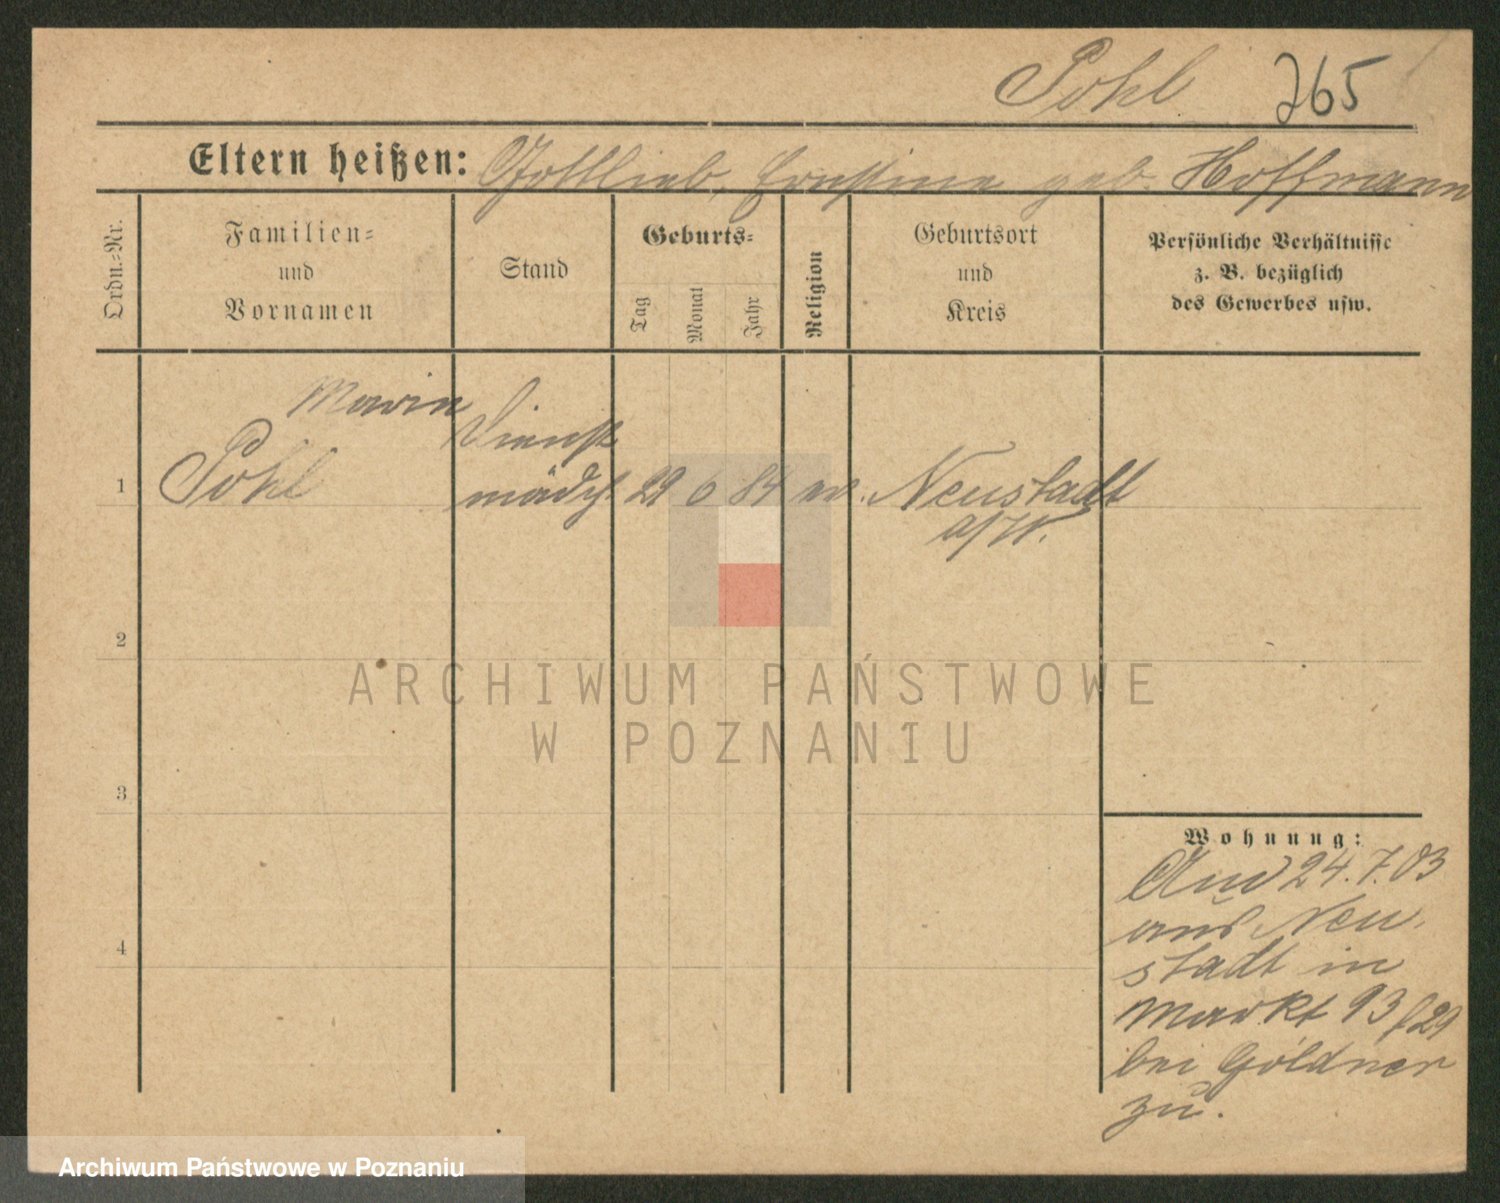 Pohl 265
Eltern heißen: Gottlieb, Ernstine geb. Hoffmann
Ordn.-Nr.
Familien-
und
Vornamen
Stand
Geburts-
Tag
Monat
Jahr
Religion
Geburtsort
und
Kreis
Persönliche Verhältnisse
z. B. bezüglich
des Gewerbes usw.
Marie
Dienst
1 Pohl mädch. 22 6 84 ev. Neustadt
a/W.
2
3
4
ARCHIWUM PAŃSTWOWE
W POZNANIU
Wohnung:
24.7.03
aus Neu-
stadt in
Markt 93 f 29
bei Göldner
zu.
Archiwum Państwowe w Poznaniu